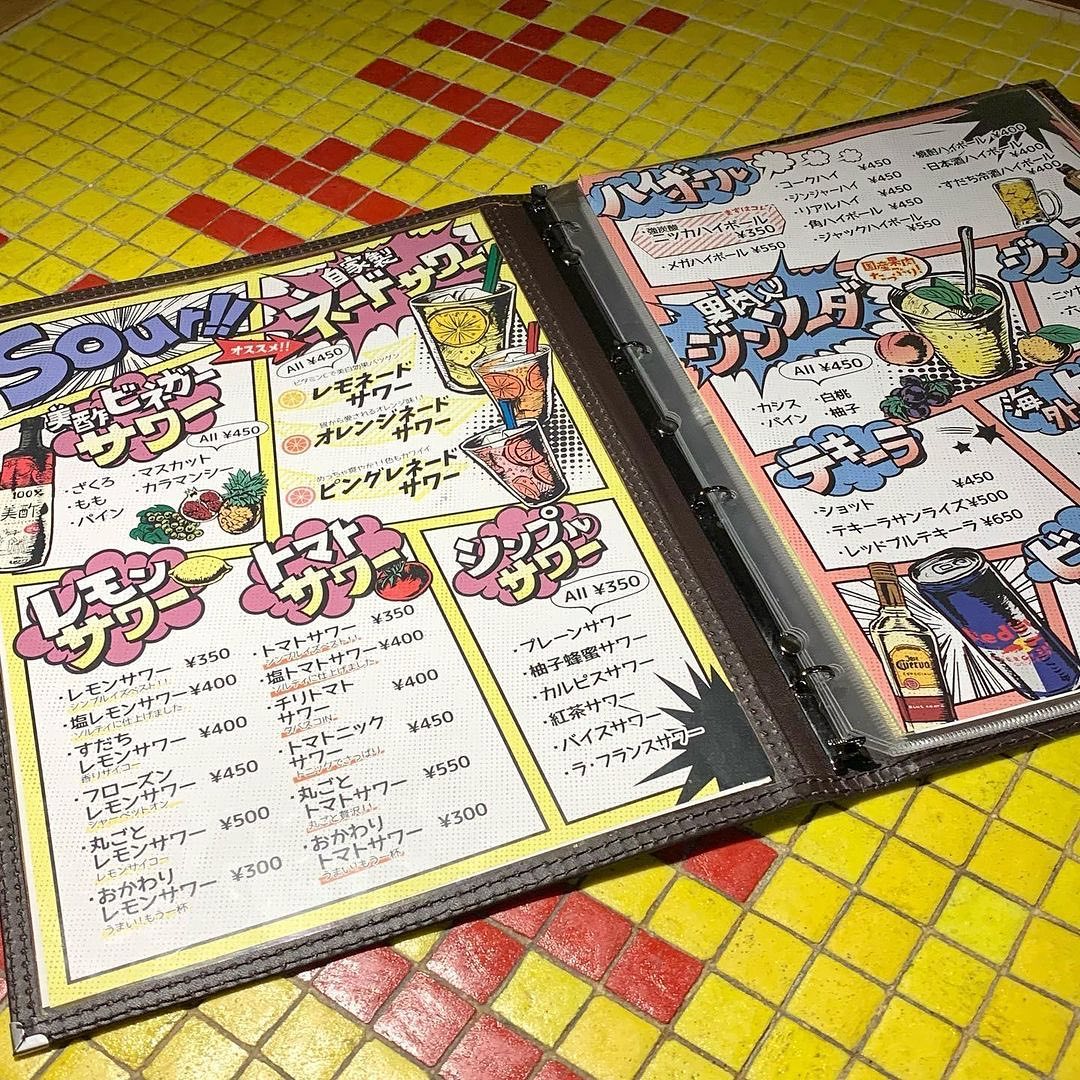 Sour!!
オススメ!!
美酢ビネガー
サワー
All ¥450
・ざくろ
・もも
・パイン
・マスカット
・カラマンシー
100%
美酢
自家製
ネードサワー
All ¥450
レモネード
サワー
オレンジネード
サワー
ピングレネード
サワー
レモン
サワー
・レモンサワー ¥350
シンプルイズベスト!!
・塩レモンサワー ¥400
ソルティに仕上げました
・すだち
レモンサワー ¥400
香りサイコー
・フローズン
レモンサワー ¥450
シャーベットオン
・丸ごと
レモンサワー ¥500
レモンサイコー
・おかわり
レモンサワー ¥300
うまい!もう一杯
トマト
サワー
・トマトサワー ¥350
シンプルイズベスト!!
・塩トマトサワー ¥400
ソルティに仕上げました
・チリトマト
サワー ¥400
タバスコIN
・トマトニック
サワー ¥450
トニックでさっぱり
・丸ごと
トマトサワー ¥550
丸ごと贅沢!!
・おかわり
トマトサワー ¥300
うまい!もう一杯
シンプル
サワー
All ¥350
・プレーンサワー
・柚子蜂蜜サワー
・カルピスサワー
・紅茶サワー
・バイスサワー
・ラ・フランスサワー
ハイボール
まずはコレ!
・強炭酸
ニッカハイボール
¥350
・メガハイボール ¥550
・コークハイ ¥450
・ジンジャーハイ ¥450
・リアルハイ ¥450
・角ハイボール ¥450
・ジャックハイボール ¥550
・焼酎ハイボール ¥400
・日本酒ハイボール ¥400
・すだち冷酒ハイボール ¥400
果肉入り
ジンソーダ
国産果肉
たっぷり!
All ¥450
・カシス
・パイン
・白桃
・柚子
テキーラ
・ショット ¥450
・テキーラサンライズ ¥500
・レッドブルテキーラ ¥650
Cuervo
ジン
・ニッ
海
外
ビ